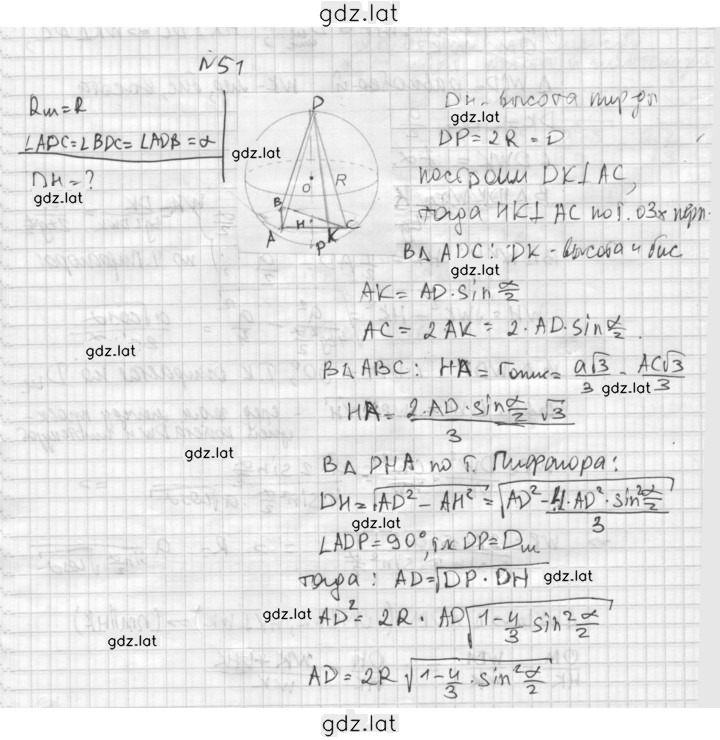 gdz.lat
N51
Rш = R
∠ADC = ∠BDC = ∠ADB = α
DH = ?
gdz.lat
gdz.lat
D
O R
B
A H K C
P
DH - высота пир-ды
gdz.lat
DP = 2R = D
построим DK⊥AC,
тогда HK⊥AC по т. о 3х перп.
В△ADC: DK - высота и бис
gdz.lat
AK = AD·sin α/2
AC = 2AK = 2·AD·sin α/2.
gdz.lat
В△ABC: HA = rопис = a√3/3 = AC√3/3
gdz.lat
HA = 2·AD·sin α/2 √3/3
gdz.lat
В△DHA по т. Пифагора:
DH = √AD² - AH² = √AD² - 4·AD²·sin² α/2/3
gdz.lat
∠ADP = 90°, тк DP = Dш
тогда: AD = √DP·DH
gdz.lat
gdz.lat
AD² = 2R·AD√1 - 4/3 sin² α/2
gdz.lat
AD = 2R√1 - 4/3·sin² α/2
gdz.lat